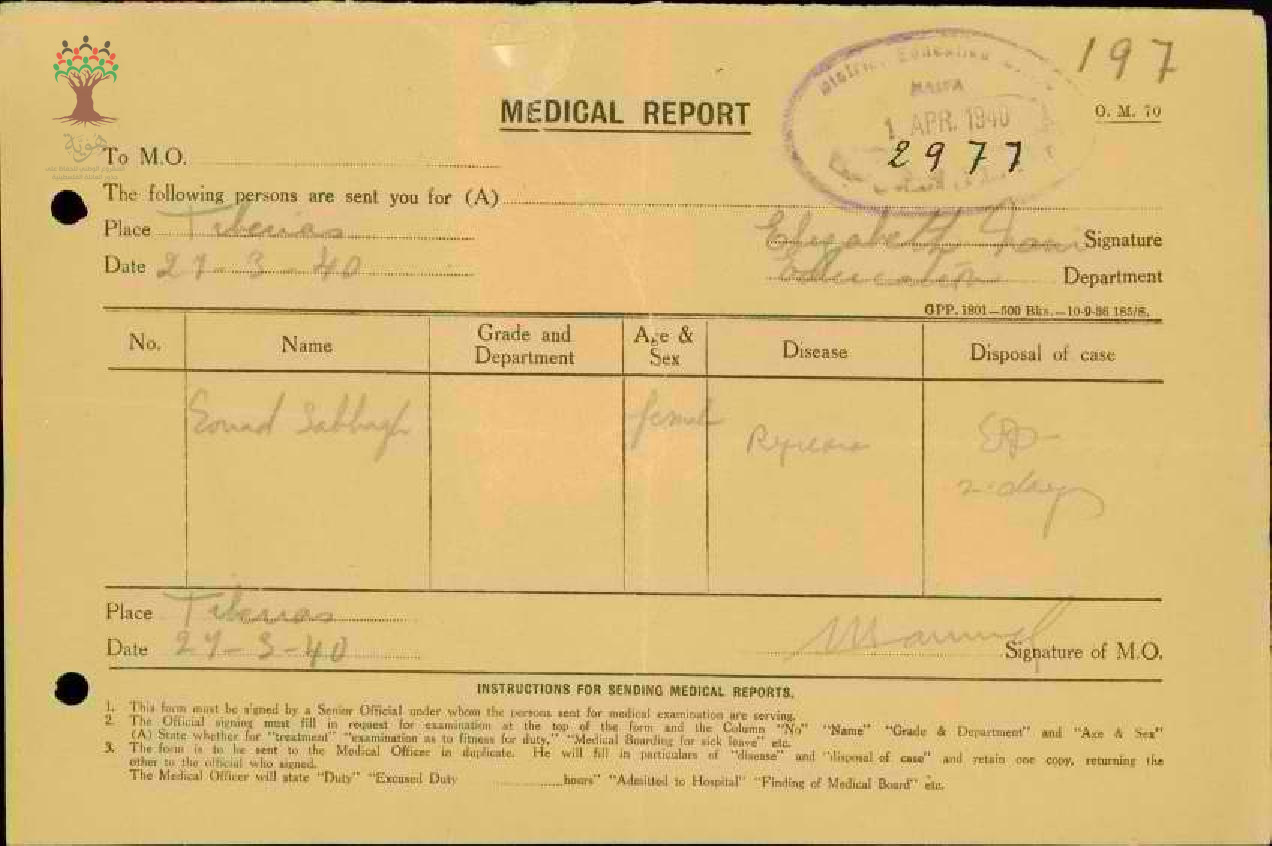 197
MEDICAL REPORT
G. M. 70
District Education
HAIFA
1 APR. 1940
2977
هوية
To M.O.
The following persons are sent you for (A)
Place Tiberias
Elizabeth Signature
Date 27-3-40
Education Department
GPP. 1801—500 Bks.—10-9-36 185/S.
No. Name Grade and Department Age & Sex Disease Disposal of case
Sabbagh
2 days
Place Tiberias
Date 27-3-40
Signature of M.O.
INSTRUCTIONS FOR SENDING MEDICAL REPORTS.
1. This form must be signed by a Senior Official under whom the persons sent for medical examination are serving.
2. The Official signing must fill in request for examination at the top of the form and the Column "No" "Name" "Grade & Department" and "Age & Sex"
(A) State whether for "treatment" "examination as to fitness for duty," "Medical Boarding for sick leave" etc.
3. The form is to be sent to the Medical Officer in duplicate. He will fill in particulars of "disease" and "disposal of case" and retain one copy, returning the
other to the official who signed.
The Medical Officer will state "Duty" "Excused Duty ............hours" "Admitted to Hospital" "Finding of Medical Board" etc.